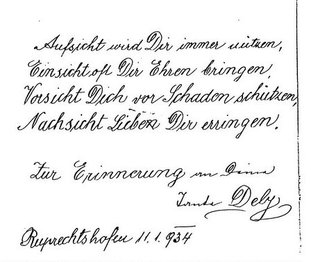 Aufsicht wird Dir immer nützen,
Einsicht oft Dir Ehren bringen,
Vorsicht Dich vor Schaden schützen,
Nachsicht Lieben Dir erringen.
Zur Erinnerung an Deine
Tante Dely
Ruprechtshofen 11.1.934